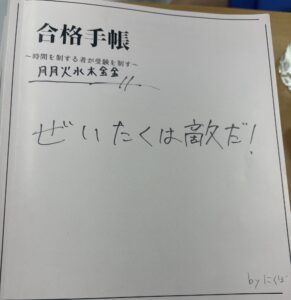 合格手帳
~時間を制する者が受験を制す~
月月火水木金金
ぜいたくは敵だ!
byにくば